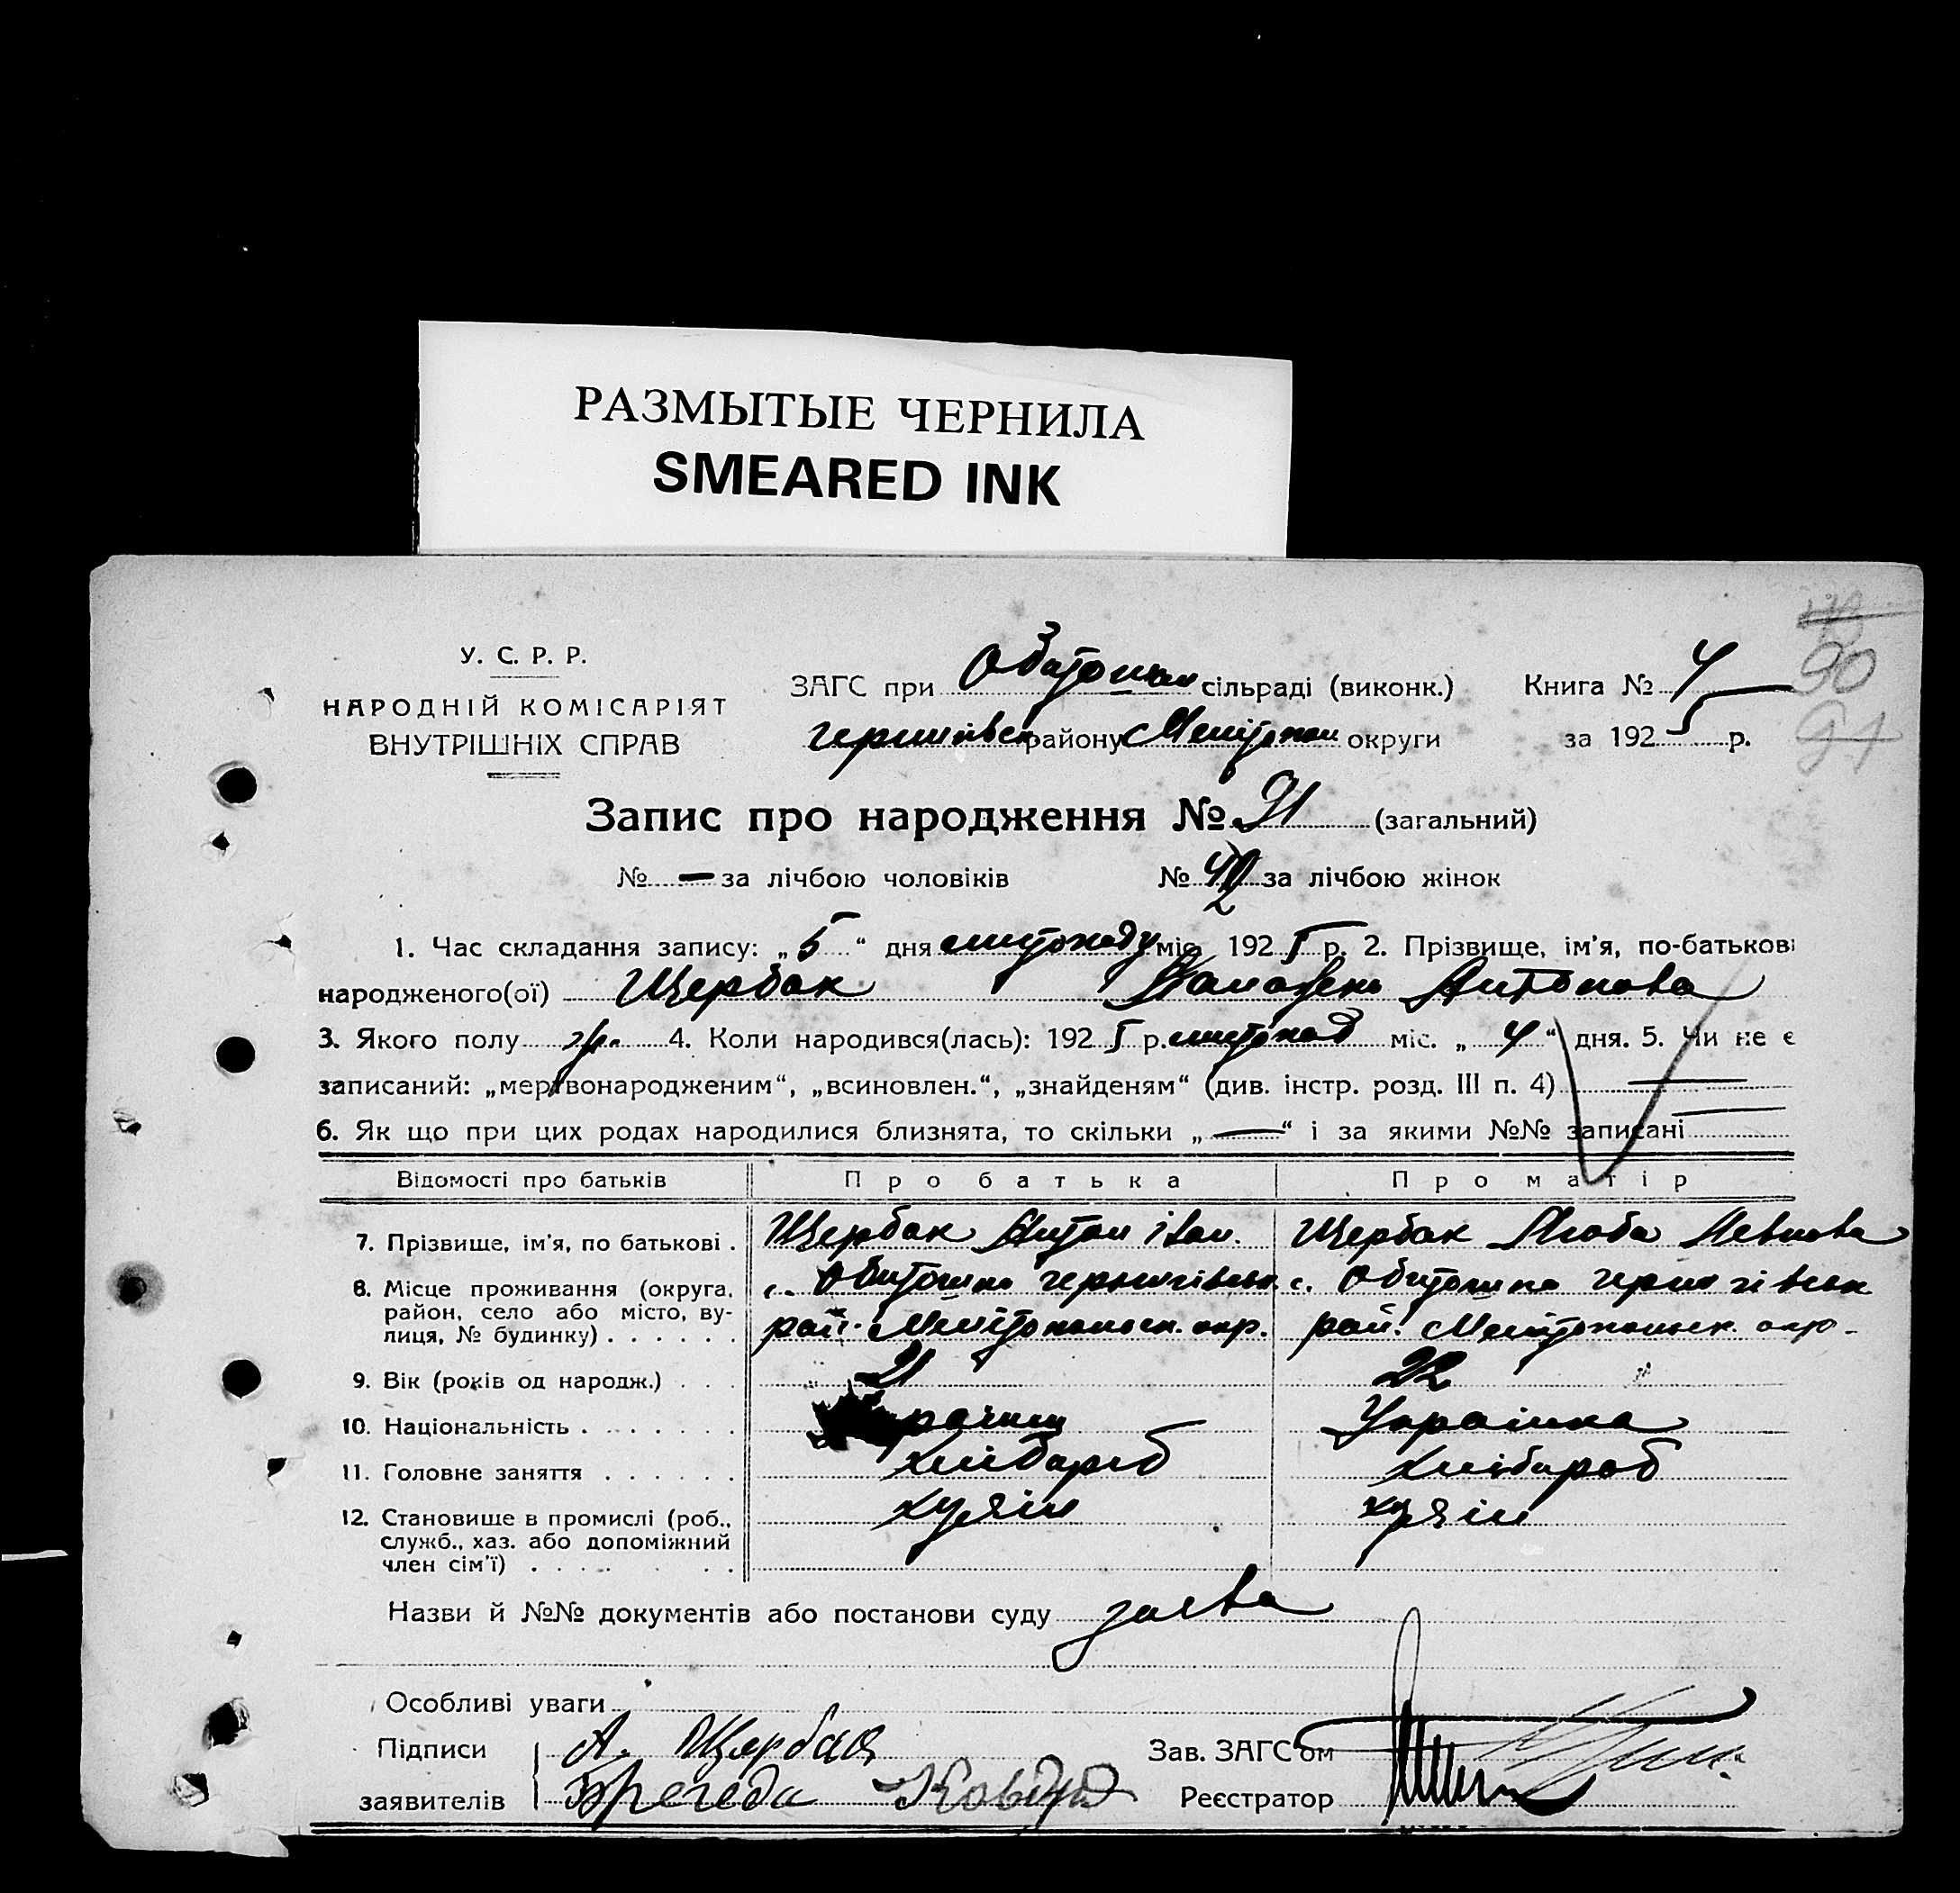 РАЗМЫТЫЕ ЧЕРНИЛА
SMEARED INK
У. С. Р. Р.
НАРОДНІЙ КОМІСАРІЯТ
ВНУТРІШНІХ СПРАВ
ЗАГС при сільраді (виконк.) Книга № 4
району округи за 1925 р.
90
91
Запис про народження № 91 (загальний)
№ — за лічбою чоловіків № за лічбою жінок
1. Час складання запису: „5“ дня листопаду міс. 1925 р. 2. Прізвище, ім'я, по-батькові
народженого(ої) Щербак Антонова
3. Якого полу 4. Коли народився(лась): 1925 р. листопад міс. „4“ дня. 5. Чи не є
записаний: „мертвонародженим“, „всиновлен.“, „знайденям“ (див. інстр. розд. III п. 4) —
6. Як що при цих родах народилися близнята, то скільки „—“ і за якими №№ записані —
Відомості про батьків Про батька Про матір
7. Прізвище, ім'я, по батькові . Щербак Антон Іван. Щербак Люба
8. Місце проживання (округа, район, село або місто, вулиця, № будинку) . . . . . . с. Обиточна с. Обиточна
рай. Мелітопольськ. окр. рай. Мелітопольськ. окр.
9. Вік (років од народж.) . . . 21 22
10. Національність . . . . . . . Українка
11. Головне заняття . . . . . . хлібороб хлібороб
12. Становище в промислі (роб., служб., хаз. або допоміжний член сім'ї) . . . .
Назви й №№ документів або постанови суду заява
Особливі уваги
Підписи А. Щербак Зав. ЗАГС'ом
заявителів Реєстратор